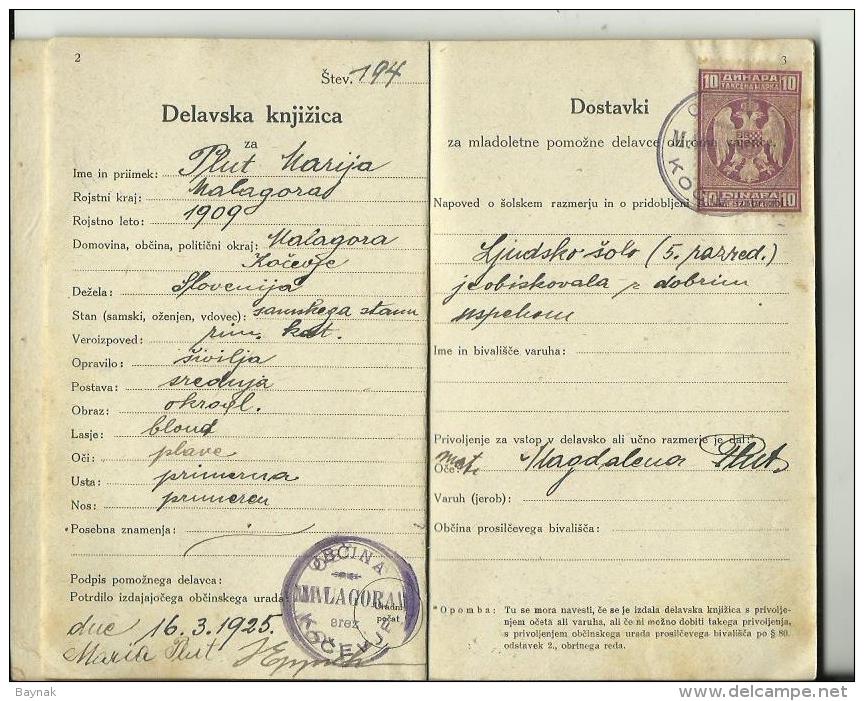 2
Štev. 194
Delavska knjižica
za
Ime in priimek: Plut Marija
Rojstni kraj: Malagora
Rojstno leto: 1909
Domovina, občina, politični okraj: Malagora
Kočevje
Dežela: Slovenija
Stan (samski, oženjen, vdovec): samskega stanu
Veroizpoved: rim. kat.
Opravilo: šivilja
Postava: srednja
Obraz: okrogl.
Lasje: blond
Oči: plave
Usta: primerna
Nos: primeren
Posebna znamenja:
Podpis pomožnega delavca:
Potrdilo izdajajočega občinskega urada:
dne 16.3.1925.
Maria Plut
OBČINA
MALAGORA
srez
KOČEVJE
Uradni
pečat
3
Dostavki
za mladoletne pomožne delavce oziroma vajence.
10 ДИНАРА 10
ТАКСЕНА МАРКА
10 DINARA 10
Napoved o šolskem razmerju in o pridobljeni
Ljudsko šolo (5. razred.)
je obiskovala z dobrim
uspehom
Ime in bivališče varuha:
Privoljenje za vstop v delavsko ali učno razmerje je dal:*
mati
Oče: Magdalena Plut
Varuh (jerob):
Občina prosilčevega bivališča:
*Opomba: Tu se mora navesti, če se je izdala delavska knjižica s privolje-
njem očeta ali varuha, ali če ni možno dobiti takega privoljenja,
s privoljenjem občinskega urada prosilčevega bivališča po § 80.
odstavek 2., obrtnega reda.
Baynak
www.delcampe.net